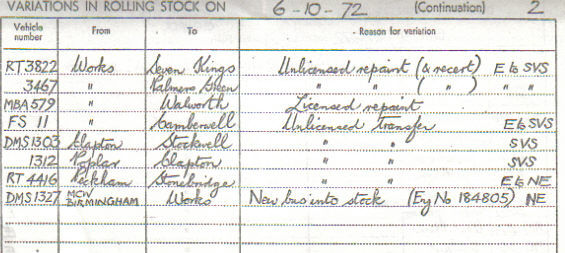 VARIATIONS IN ROLLING STOCK ON 6-10-72 (Continuation) 2
Vehicle number From To Reason for variation
RT3822 Works Seven Kings Unlicensed repaint (& recert) E to SVS
3467 " Palmers Green " " ( " ) " "
MBA579 " Walworth Licensed repaint
FS 11 " Camberwell Unlicensed Transfer E to SVS
DMS1303 Clapton Stockwell " " SVS
1312 Poplar Clapton " " SVS
RT 4416 Peckham Stonebridge " " E to NE
DMS1327 MCW BIRMINGHAM Works New bus into stock (Eng No 184805) NE